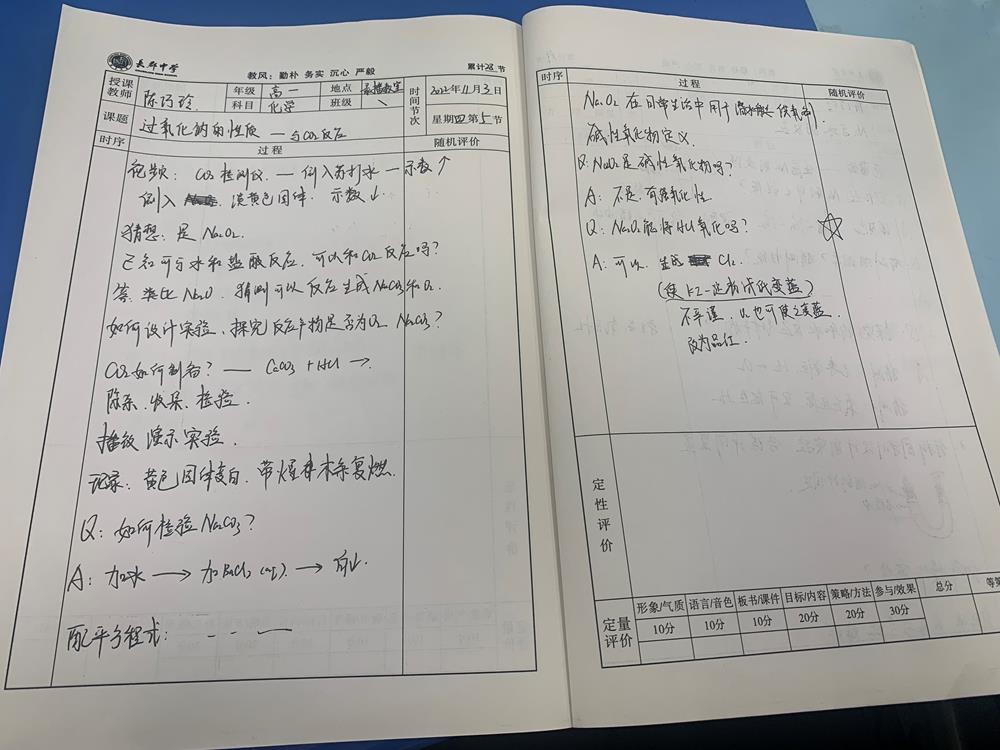 長郡中学
教风：勤朴 务实 沉心 严毅
累计28节
授课教师 陈巧玲 年级 高一 地点 录播教室 时间节次 2022年11月3日
科目 化学 班级 \ 星期四第5节
课题 过氧化钠的性质 — 与CO2反应
时序 过程 随机评价
视频：CO2检测仪 — 倒入苏打水 — 示数↑
倒入 淡黄色固体 示数↓
猜想：是Na2O2.
已知可与水和盐酸反应，可以和CO2反应吗？
答：类比Na2O，猜测可以反应生成Na2CO3和O2
如何设计实验，探究反应产物是否为O2 Na2CO3？
CO2如何制备？— CaCO3 + HCl →
除杂、收集、检验
播放演示实验.
记录：黄色固体变白，带火星木条复燃
Q：如何检验Na2CO3？
A：加水 → 加BaCl2(aq) → 白↓
配平方程式：
时序 过程 随机评价
Na2O2在日常生活中用于 供氧剂.
碱性氧化物定义
Q：Na2O2是碱性氧化物吗？
A：不是，有强氧化性
Q：Na2O2能将HCl氧化吗？
A：可以，生成 Cl2
(使KI-淀粉试纸变蓝)
不严谨，O2也可使之变蓝
改为品红.
定性评价
定量评价 形象/气质 语言/音色 板书/课件 目标/内容 策略/方法 参与/效果 总分
10分 10分 10分 20分 20分 30分